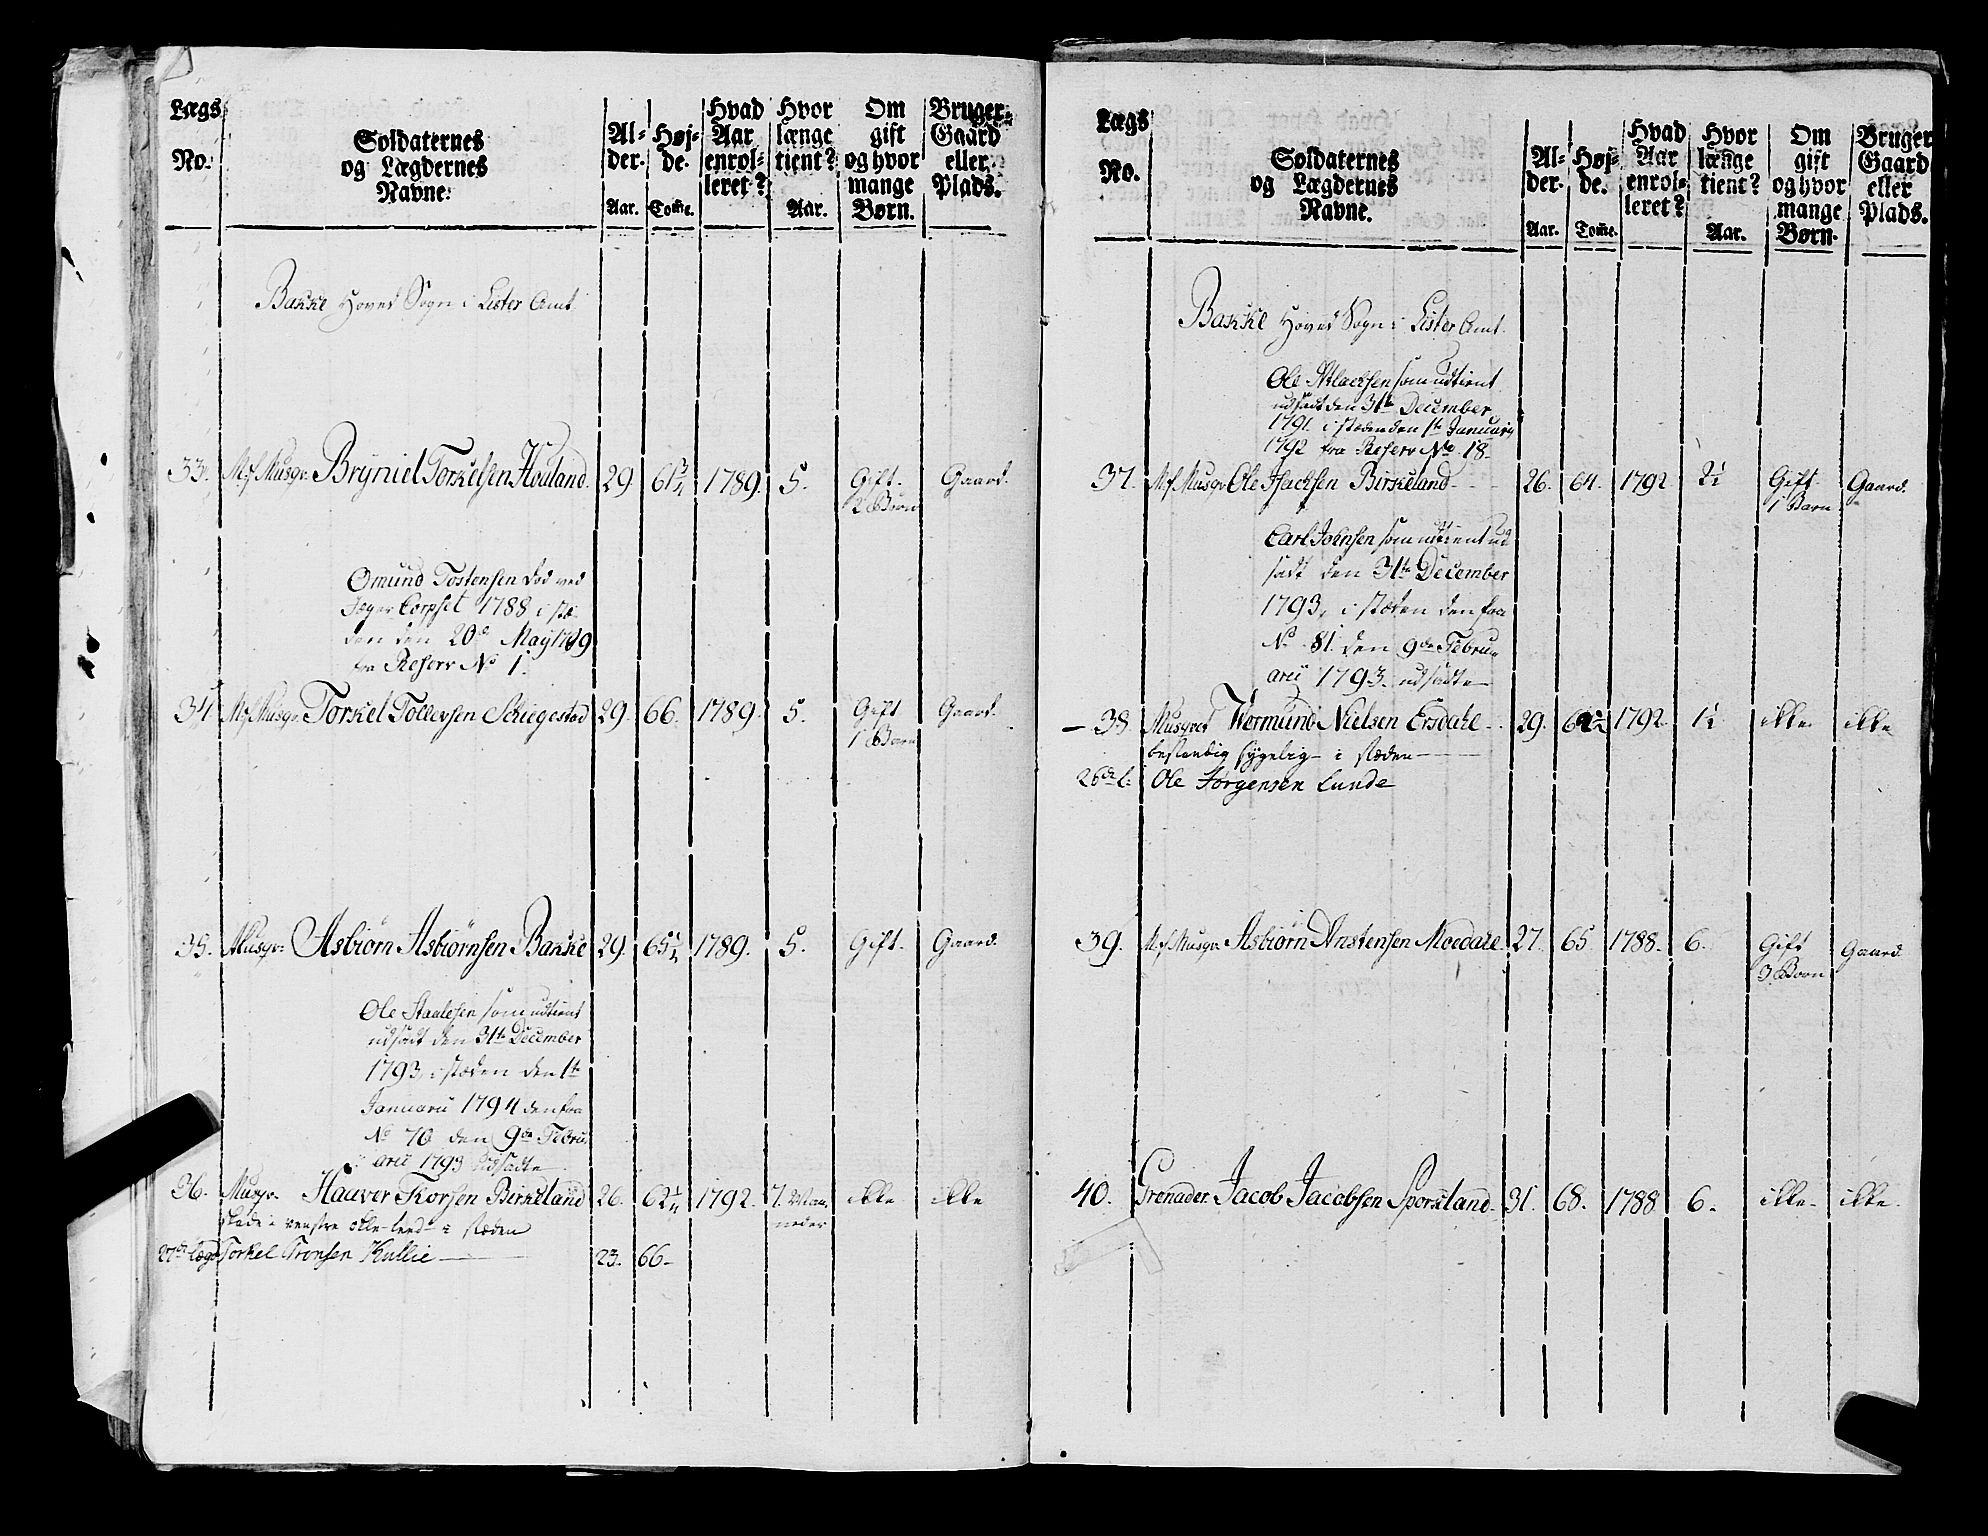 Lægs No.
Soldaternes og Lægdernes Navne.
Al-der. Aar.
Høj-de. Tome.
Hvad Aar enrol-leret?
Hvor længe tient? Aar.
Om gift og hvor mange Børn.
Bruger Gaard eller Plads.
Bakke Hoved Sogn i Lister Amt
33. Mf. Musqr. Bryniel Torkelsen Houland. 29 1789. 5. Gift. 2 Børn Gaard.
Omund Tostensen død ved
Jæger Corpset 1788 i stæ-
den den 20de May 1789
fra Reserv No 1.
34. Mf. Musqr. Torkel Tollevsen Schiegestad 29. 66. 1789. 5. Gift 1 Barn Gaard.
35. Musqr. Asbiørn Asbiørnsen Bakke 29. 65 1/4 1789. 5. Gift. Gaard.
Ole Staalesen som udtient
udsadt den 31te December
1793, i stæden den 1te
Januarii 1794 den fra
No 70 den 9de Febru
arii 1793 udsadte
36. Musqr. Haaver Torsen Birkeland 26. 62 1/4 1792. 7. Maa-neder ikke ikke
skade i venstre i stæden
27de Lægd Torkel Tronsen Kullie 23. 66.
Lægs No.
Soldaternes og Lægdernes Navne.
Al-der. Aar.
Høj-de. Tome.
Hvad Aar enrol-leret?
Hvor længe tient? Aar.
Om gift og hvor mange Børn.
Bruger Gaard eller Plads.
Bakke Hoved Sogn i Lister Amt.
Ole Atlachsen som udtient
udsadt den 31te December
1791. i stæden den 1te Januarii
1792 fra Reserv No 18.
37. Mf. Musqr. Ole Isachsen Birkeland 26. 64. 1792 2 1/2 Gift. 1 Barn Gaard.
Carl Johnsen som udtient ud
sadt den 31te December
1793, i stæden den fra
No 81. den 9de Febru
arii 1793. udsadte
38. Musqret Wermund Nielsen Ersdahl 29. 1792. 1 1/2 ikke ikke
bestandig sygelig i stæden
26de L: Ole Jørgensen Lunde
39. Mf. Musqr. Asbiørn Anstensen Moedahl. 27. 65 1788. 6. Gift 3. Børn Gaard
40. Grenader. Jacob Jacobsen Sporkland. 31. 68. 1788 6. ikke. ikke.